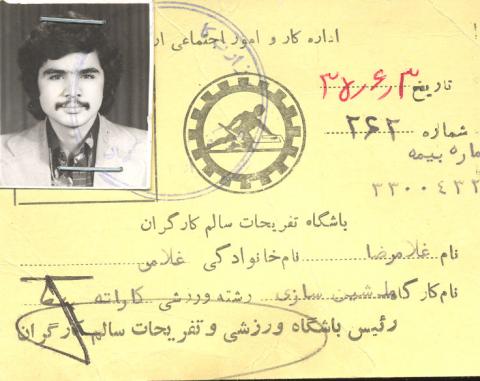 اداره کار و امور اجتماعی
تاریخ ۳۸٫۶٫۳
شماره ۲۶۲
شماره بیمه
۳۳۰۰۴۳۲
باشگاه تفریحات سالم کارگران
نام غلامرضا نام خانوادگی غلامی
نام کارگاه ماشین سازی رشته ورزشی کاراته
رئیس باشگاه ورزشی و تفریحات سالم کارگران